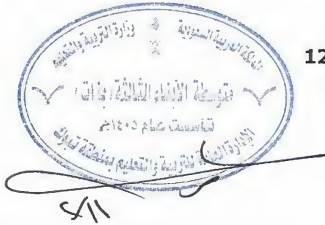 المملكة العربية السعودية
وزارة التربية والتعليم
12
متوسطة الأبناء الثالثة (بنات)
تأسست عام ١٤٠٥هـ
الإدارة العامة للتربية والتعليم بمنطقة تبوك